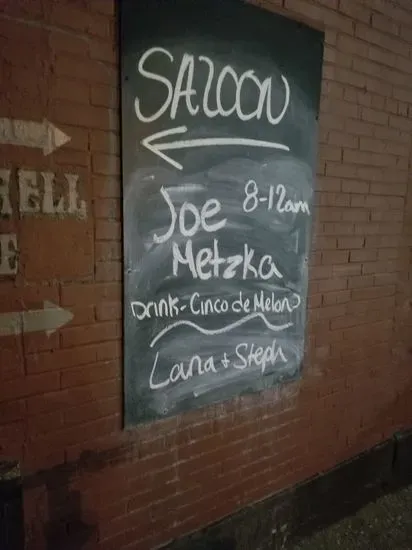 SALOON
Joe 8-12am
Metzka
Drink - Cinco de Melono
Lana + Steph
RELL
E